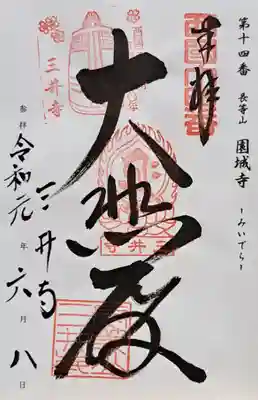 第十四番 長等山 園城寺
-みいでら-
奉拝
大悲殿
三井寺
参拝 令和元年六月八日
三井寺
三井寺